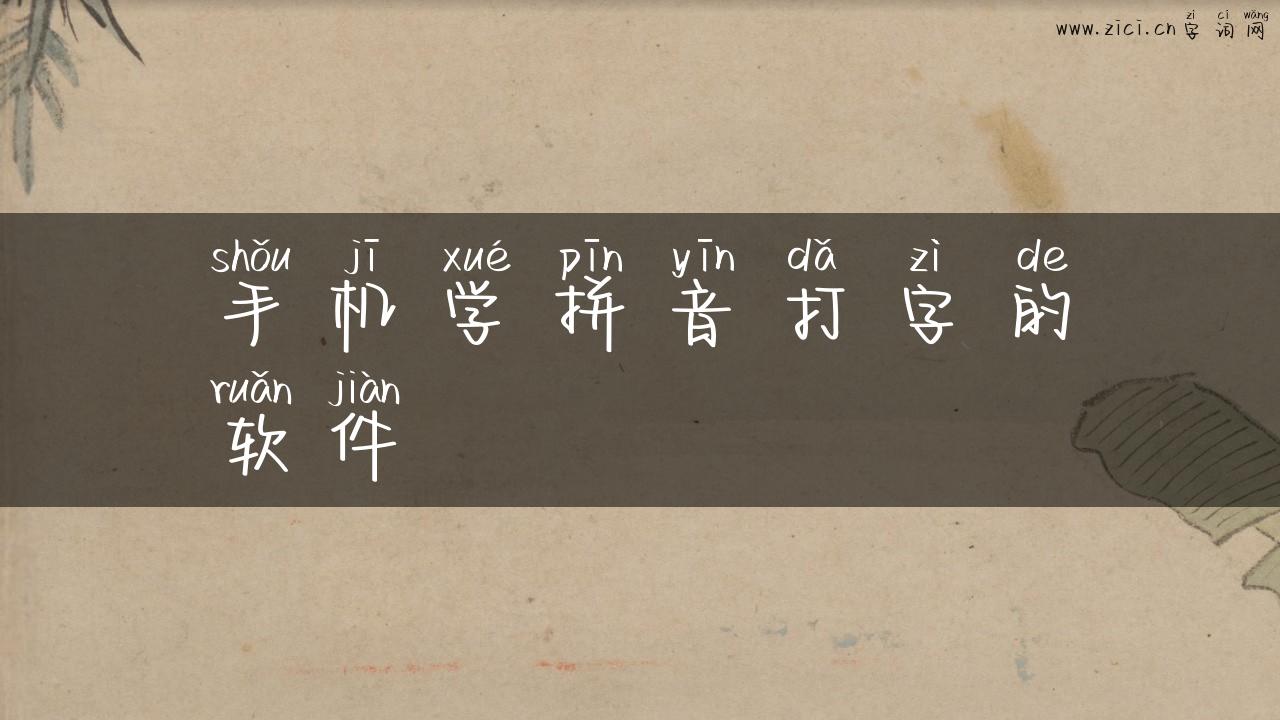 zì cí wǎng
www.zici.cn 字词网
shǒu jī xué pīn yīn dǎ zì de
手机学拼音打字的
ruǎn jiàn
软件